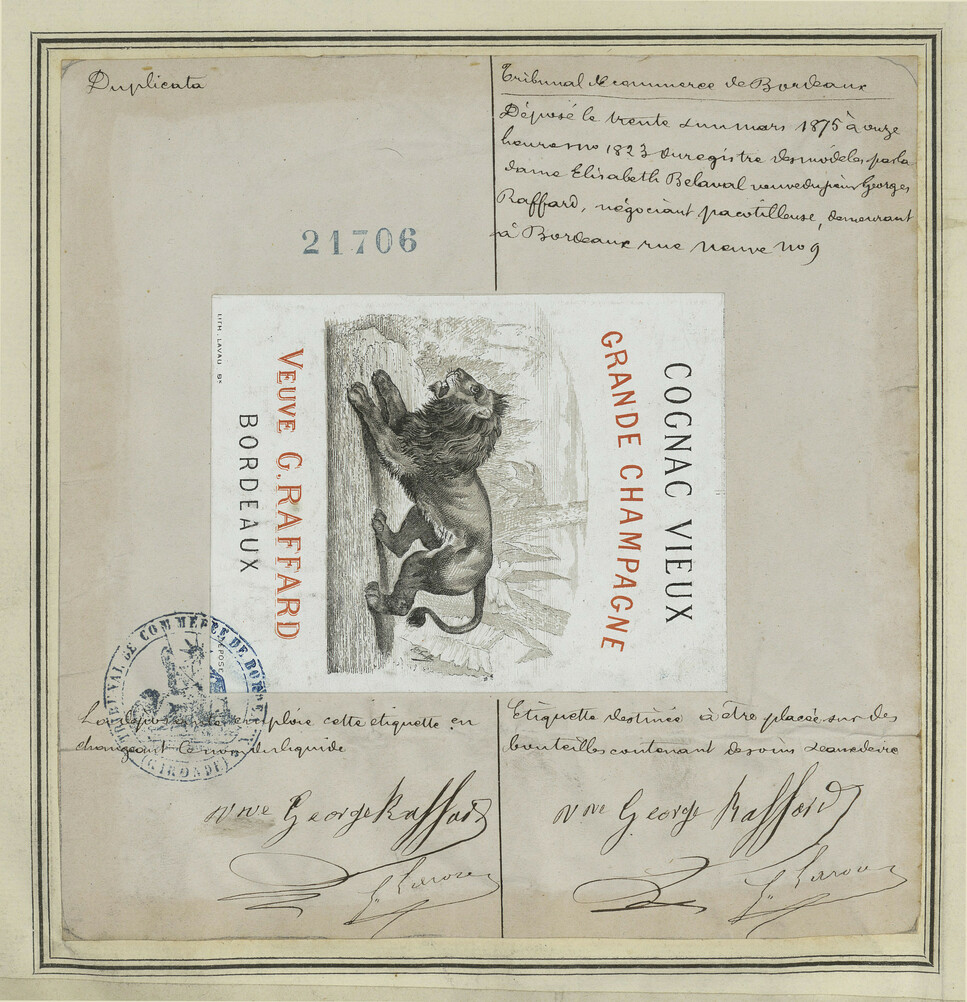 Duplicata
Tribunal de commerce de Bordeaux
Déposé le trente un mars 1875 à onze
heures no 1823 du registre des modèles par la
dame Elisabeth Belaval veuve du sieur Georges
Raffard, négociant pacotilleuse, demeurant
à Bordeaux rue Neuve no 9
21706
COGNAC VIEUX
GRANDE CHAMPAGNE
VEUVE G. RAFFARD
BORDEAUX
LITH. LAVAU BX
DÉPOSÉ
TRIBUNAL DE COMMERCE DE BORDEAUX
(GIRONDE)
La déposante emploie cette etiquette en
changeant le nom du liquide
Vve George Raffard
Etiquette destinée à être placée sur des
bouteilles contenant des vins eaux de vie
Vve George Raffard